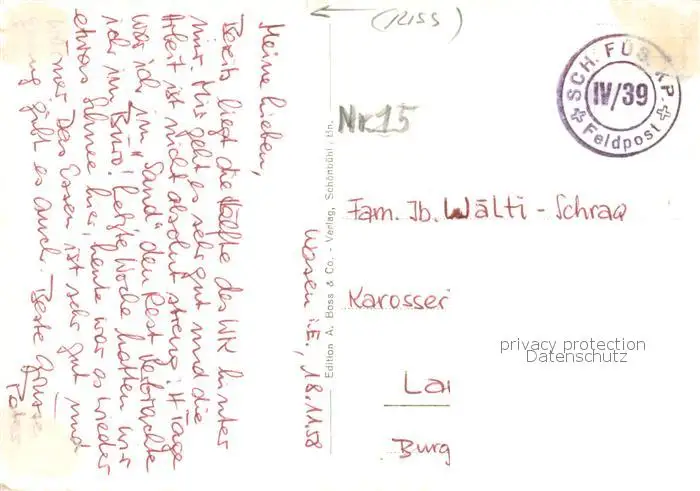 (RISS)
SCH. FÜS. KP.
IV/39
Feldpost
Nr. 15
Wasen i.E., 18.11.58
Meine Lieben,
Bereits liegt die Hälfte des WK hinter
mir. Mir geht es sehr gut und die
Arbeit ist nicht absolut streng. 4 Tage
war ich im "Sand" den Rest verbrachte
ich im Büro. Letzte Woche hatten wir
etwas Schnee hier, heute war es wieder
wärmer. Das Essen ist sehr gut und
gibt es auch. Beste Grüsse
Peter
Edition A. Boss & Co. - Verlag, Schönbühl, Bn.
Fam. Jb. Wälti - Schrag
Karosseri
Lan
Burg
privacy protection
Datenschutz